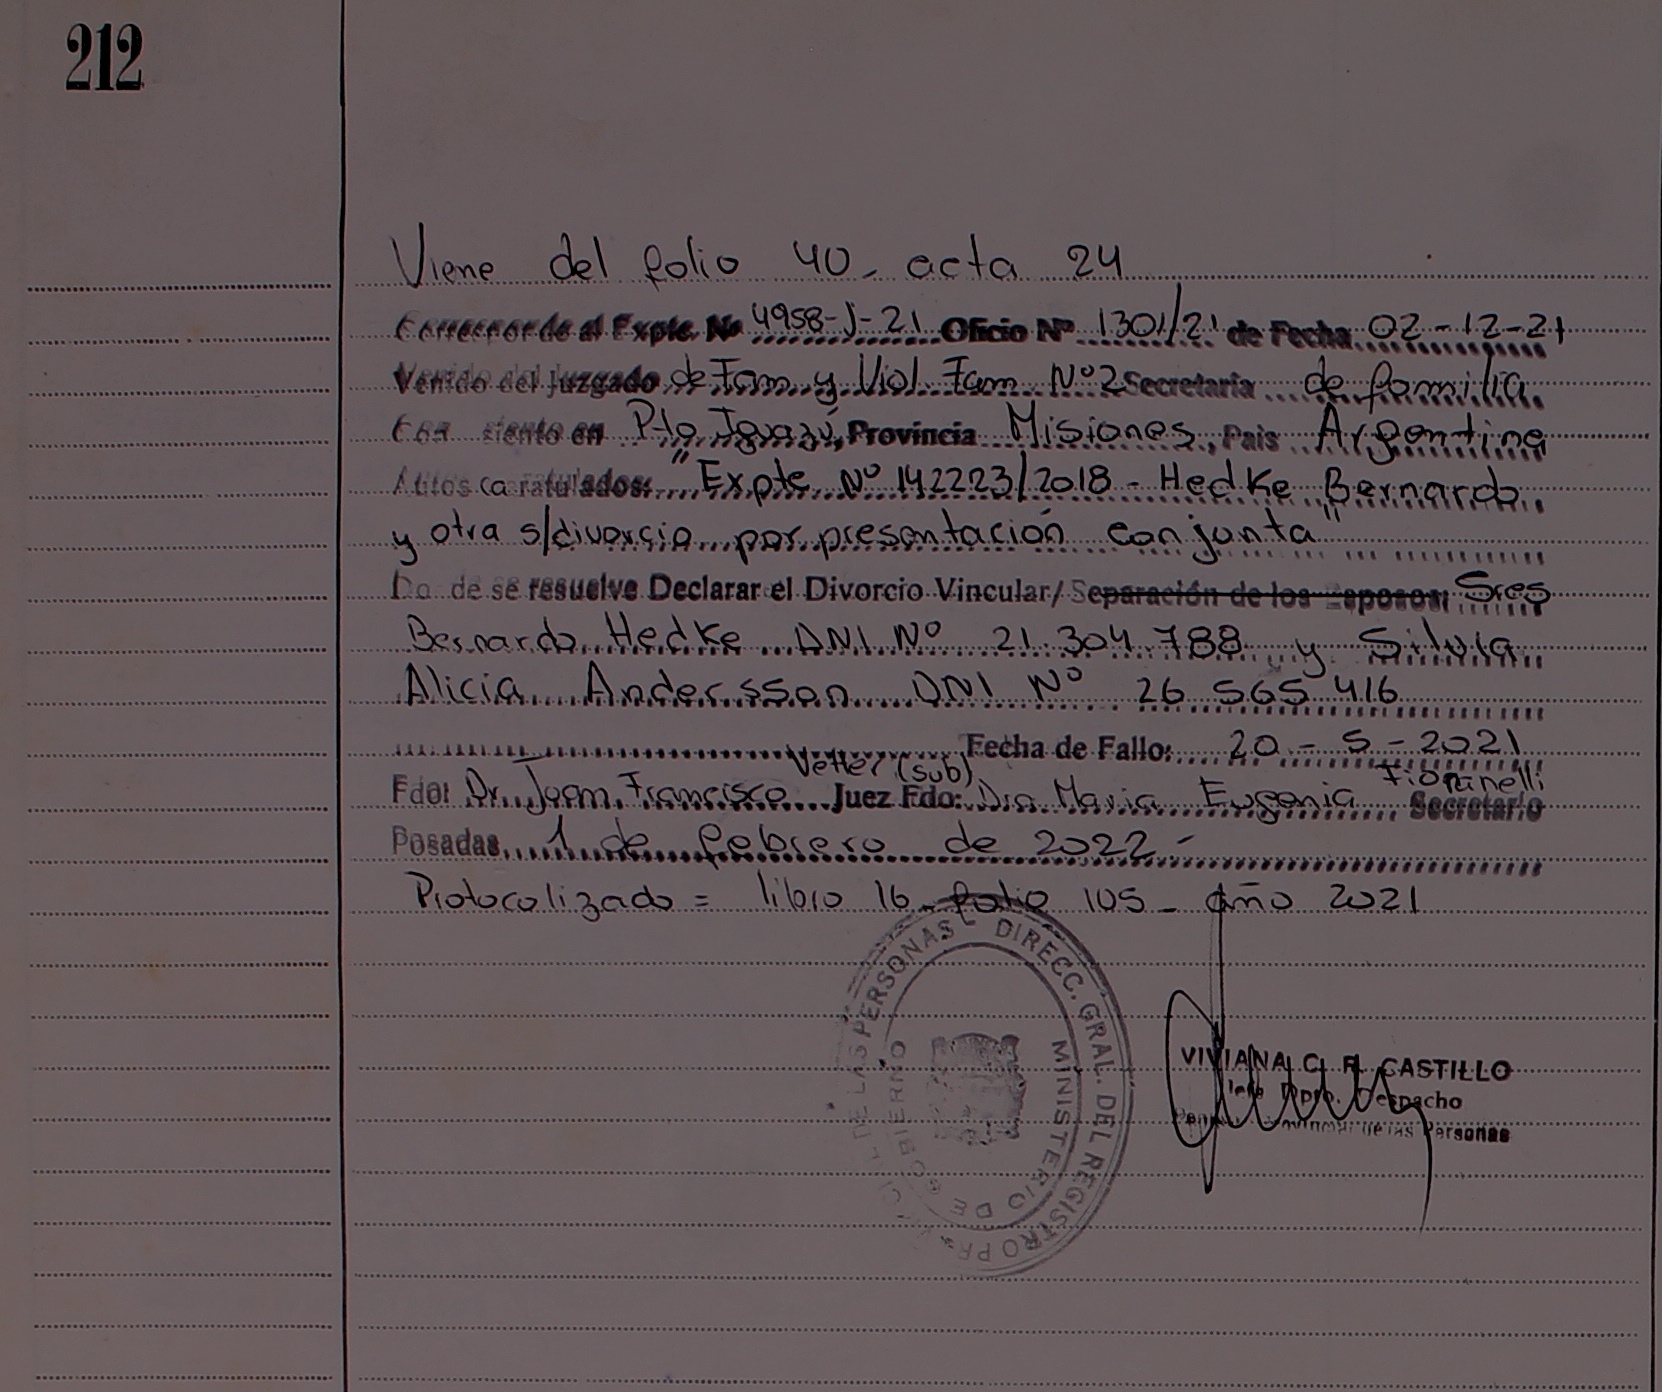 212
Viene del folio 40 - acta 24
Corresponde al Expte. Nº 4958-J-21 Oficio Nº 1301/21 de Fecha 02-12-21
Venido del Juzgado de Fam y Viol Fam Nº 2 Secretaria de familia
Con siento en Pto Iguazú, Provincia Misiones, Pais Argentina
Autos caratulados: "Expte Nº 142223/2018 - Hedke Bernardo
y otra s/divorcio por presentación conjunta"
Donde se resuelve Declarar el Divorcio Vincular/ Separación de los Esposos: Sres
Bernardo Hedke DNI Nº 21.304.788 y Silvia
Alicia Andersson DNI Nº 26 565 416
Fecha de Fallo: 20-5-2021
Fdo: Dr. Juan Francisco Vetter (sub) Juez Fdo: Dra Maria Eugenia Secretario
Posadas, 1 de febrero de 2022 -
Protocolizado = libro 16 - folio 105 - año 2021
DIRECC. GRAL. DEL REGISTRO DE LAS PERSONAS -
MINISTERIO DE GOBIERNO
VIVIANA C. R. CASTILLO
Jefe Dpto. Despacho
de las Personas